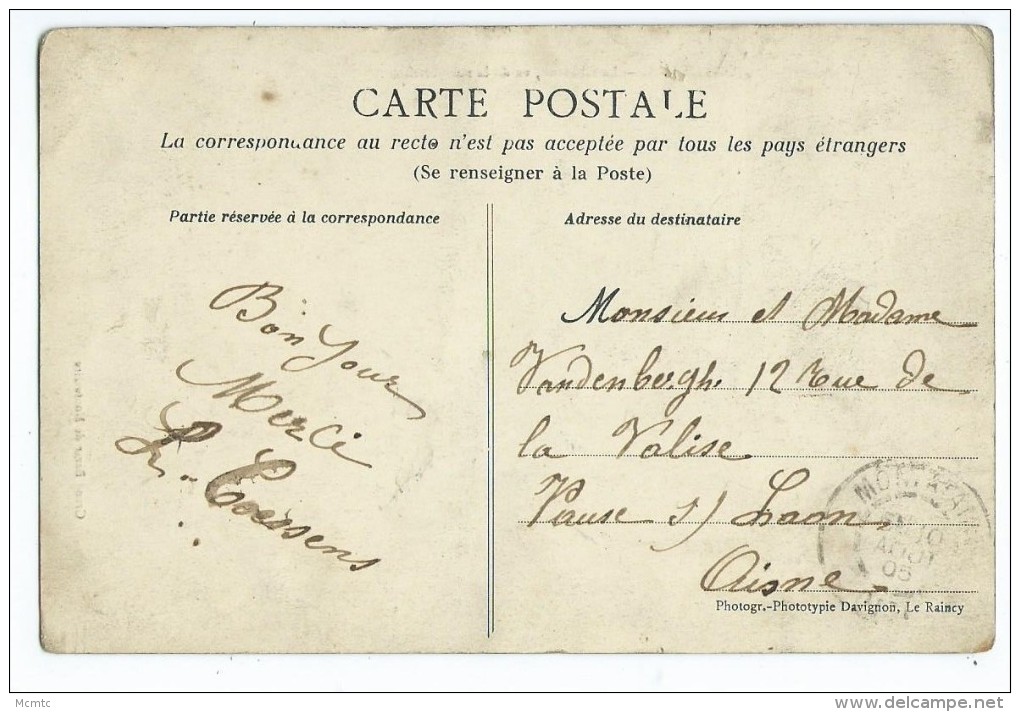 CARTE POSTALE
La correspondance au recto n'est pas acceptée par tous les pays étrangers
(Se renseigner à la Poste)
Partie réservée à la correspondance
Adresse du destinataire
Bonjour
Merci
Monsieur et Madame
Vandenbergh. 12 rue de
la Valise
Vause s/ Laon
Aisne
10
AOUT
05
Photogr.-Phototypie Davignon, Le Raincy
Mcmtc
delcampe.net